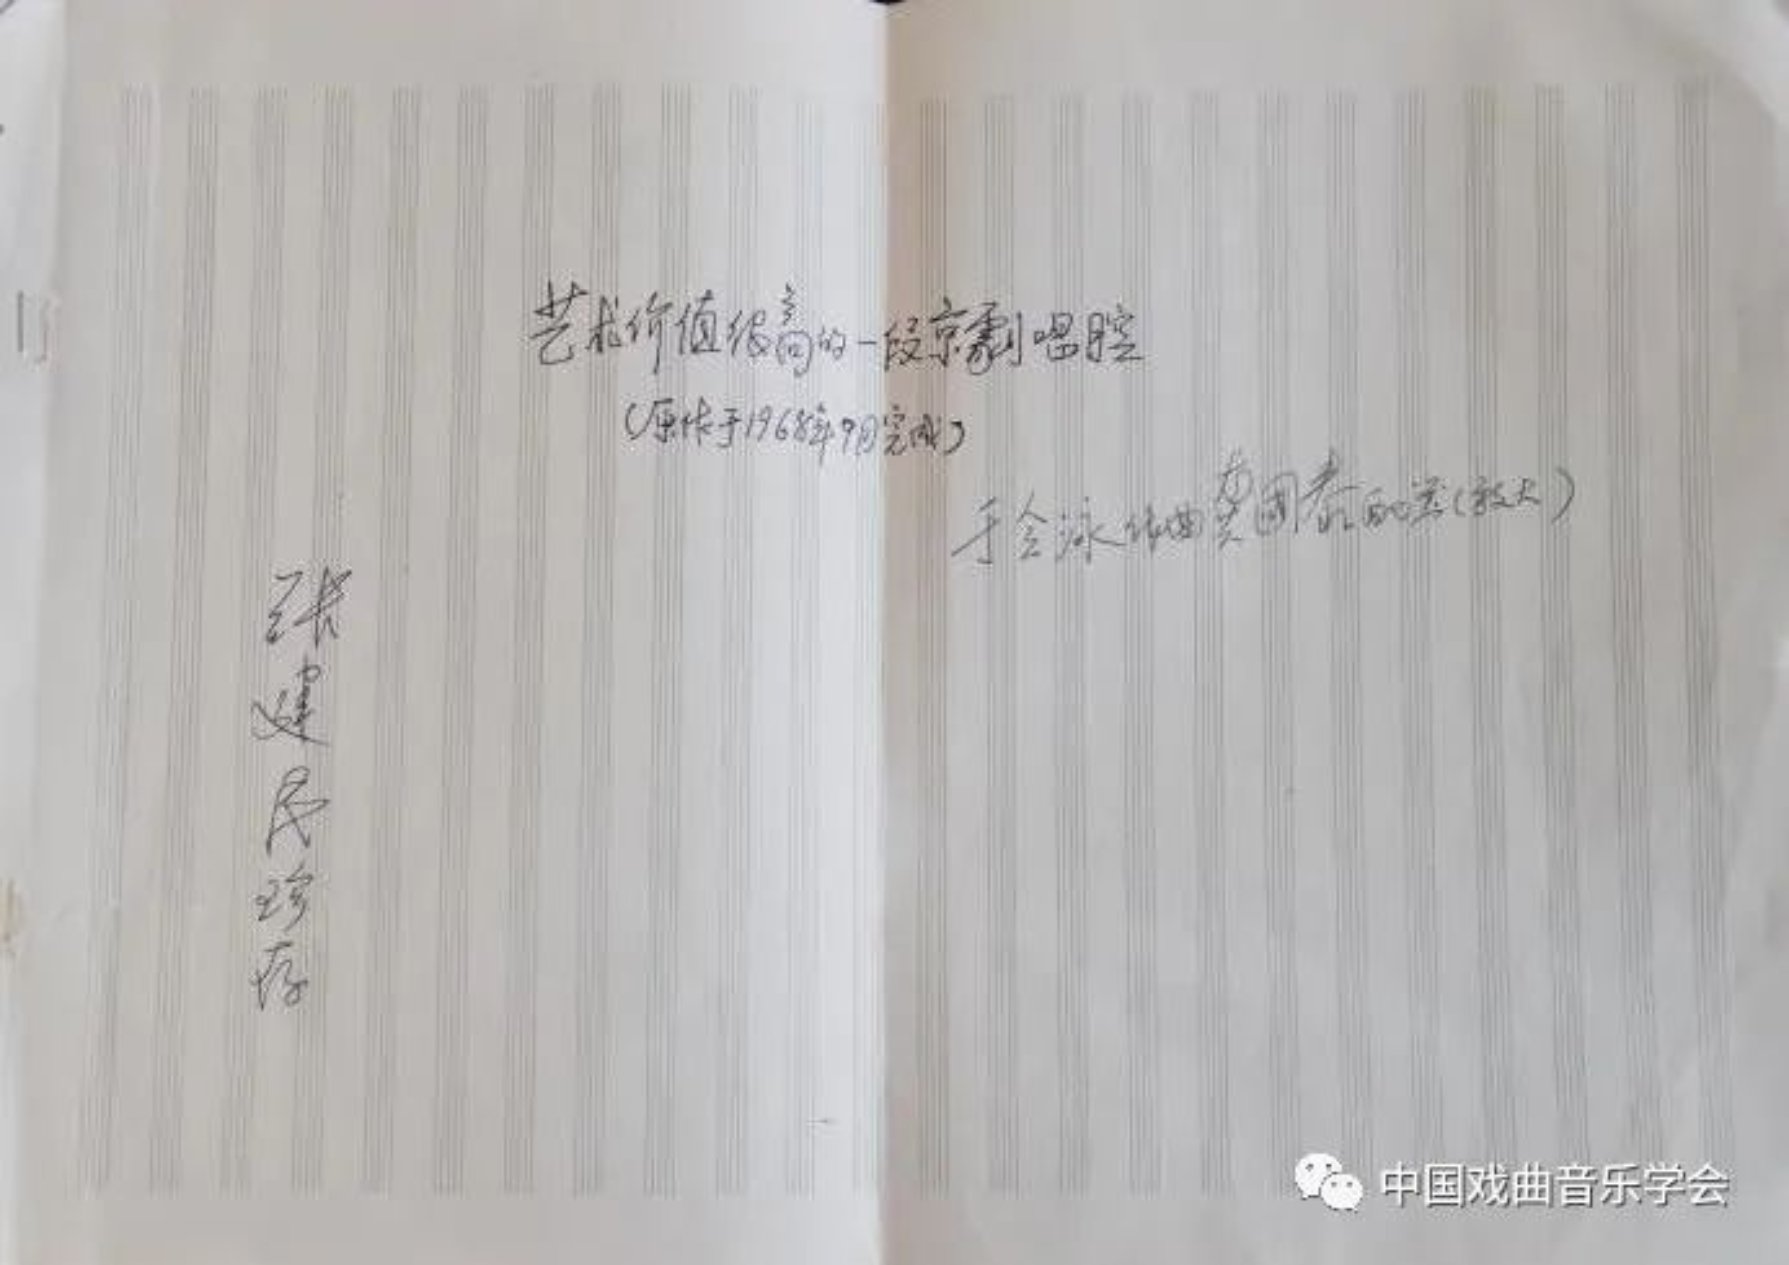 艺术价值很高的一段京剧唱腔
(原作于1968年9月完成)
于会泳作曲 黄国泰配器(放大)
张建民珍存
中国戏曲音乐学会